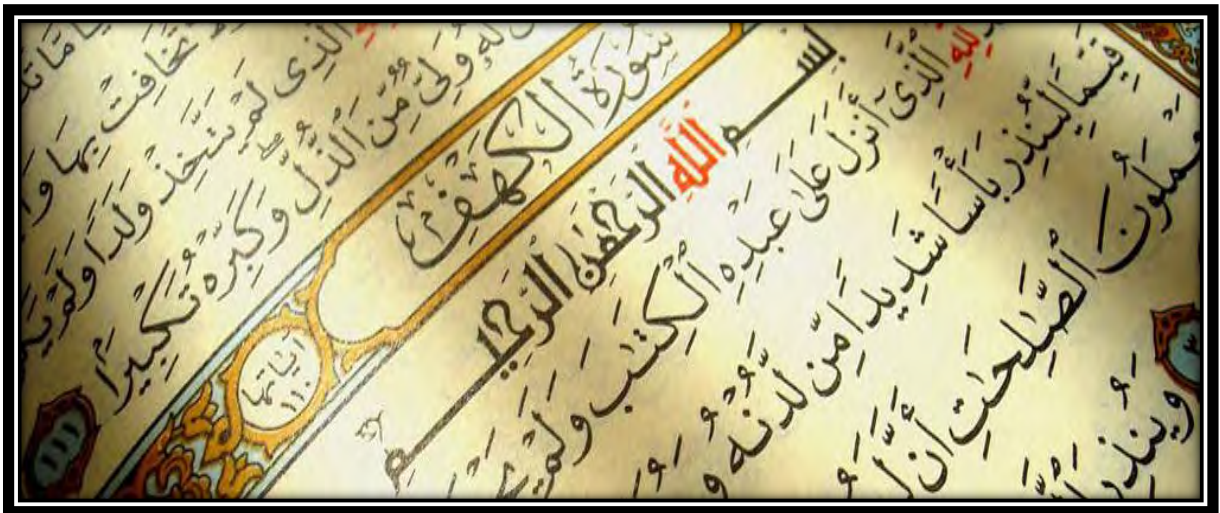 مَّا
تُخَافِتْ بِهَا
ٱلَّذِى لَمْ يَتَّخِذْ وَلَدًا وَلَمْ
لَّهُۥ وَلِىٌّ مِّنَ ٱلذُّلِّ وَكَبِّرْهُ تَكْبِيرًا ١١١
سُورَةُ الكَهْفِ
آيَاتُهَا ١١٠
بِسْمِ اللَّهِ الرَّحْمَٰنِ الرَّحِيمِ
لِلَّهِ ٱلَّذِىٓ أَنزَلَ عَلَىٰ عَبْدِهِ ٱلْكِتَٰبَ وَلَمْ
قَيِّمًا لِّيُنذِرَ بَأْسًا شَدِيدًا مِّن لَّدُنْهُ وَ
يَعْمَلُونَ ٱلصَّٰلِحَٰتِ أَنَّ
٣ وَيُنذِرَ